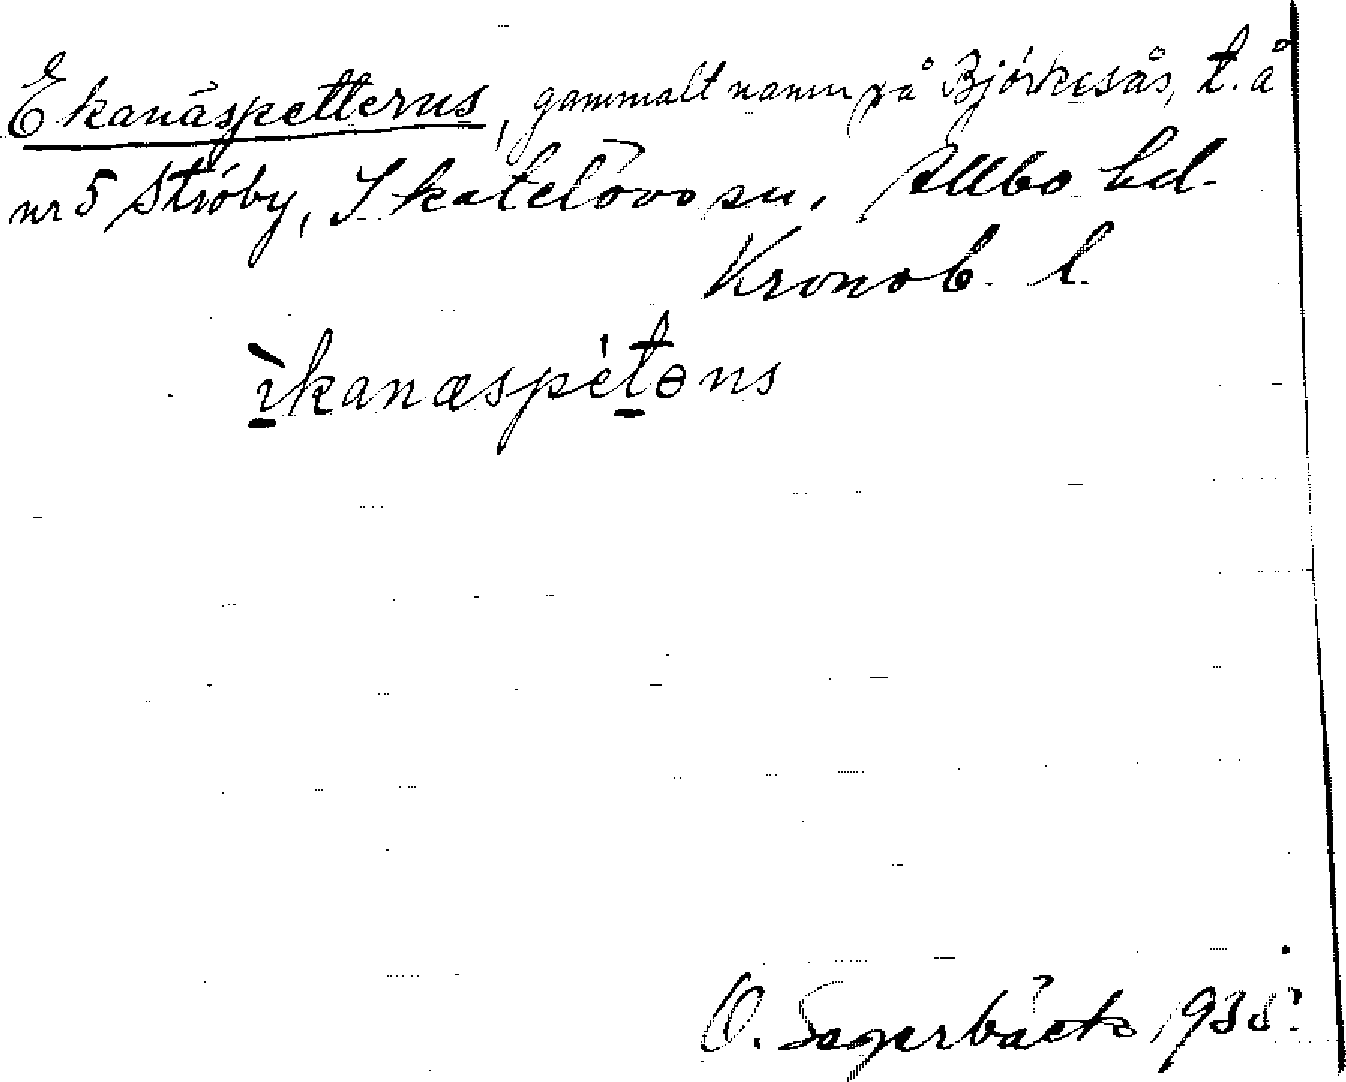 Ekanäspetterns, gammalt namn på Björkesås, t. å
nr 5 Ströby, Skatelövs sn, Allbo hd.
Kronob. l.
ìkanæspétəns
O. Sagerbäck 1935.